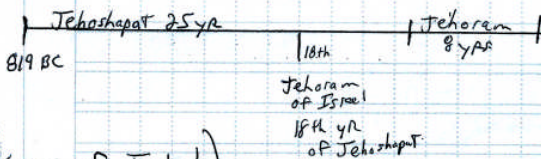 Jehoshapat 25 yR
Jehoram
8 yRs
819 BC
18th
Jehoram
of Israel
18th yR
of Jehoshapat